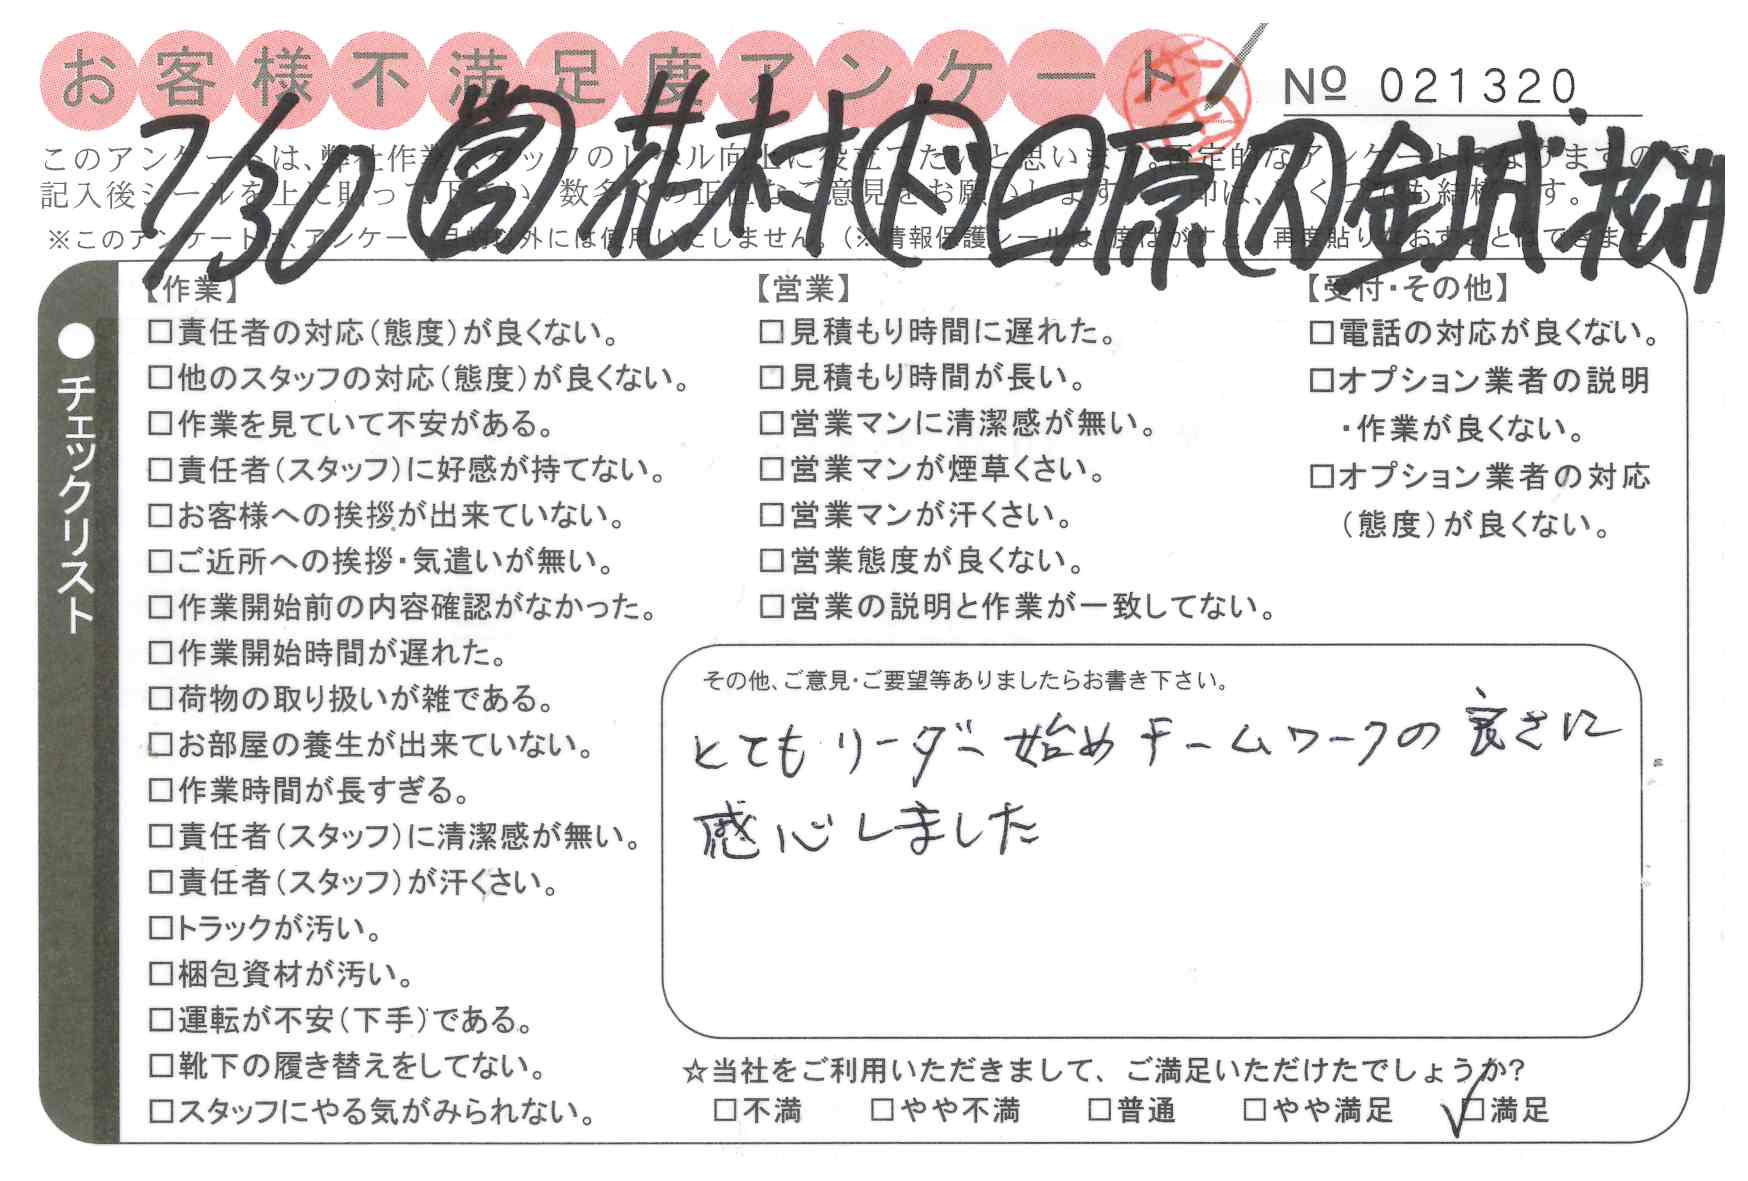 お客様不満足度アンケート
№ 021320
7/30 (営)花村(内)日原(入)金城・松井
このアンケートは、弊社作業スタッフのレベル向上に役立てたいと思います。否定的なアンケートになりますので
記入後シールを上に貼って下さい。数多くの正直なご意見をお願いします。 印は、いくつでも結構です。
※このアンケートは、アンケート目的以外には使用いたしません。(※情報保護シールは1度はがすと、再度貼りなおすことはできません
●チェックリスト
【作業】
□責任者の対応(態度)が良くない。
□他のスタッフの対応(態度)が良くない。
□作業を見ていて不安がある。
□責任者(スタッフ)に好感が持てない。
□お客様への挨拶が出来ていない。
□ご近所への挨拶・気遣いが無い。
□作業開始前の内容確認がなかった。
□作業開始時間が遅れた。
□荷物の取り扱いが雑である。
□お部屋の養生が出来ていない。
□作業時間が長すぎる。
□責任者(スタッフ)に清潔感が無い。
□責任者(スタッフ)が汗くさい。
□トラックが汚い。
□梱包資材が汚い。
□運転が不安(下手)である。
□靴下の履き替えをしてない。
□スタッフにやる気がみられない。
【営業】
□見積もり時間に遅れた。
□見積もり時間が長い。
□営業マンに清潔感が無い。
□営業マンが煙草くさい。
□営業マンが汗くさい。
□営業態度が良くない。
□営業の説明と作業が一致してない。
【受付・その他】
□電話の対応が良くない。
□オプション業者の説明
・作業が良くない。
□オプション業者の対応
(態度)が良くない。
その他、ご意見・ご要望等ありましたらお書き下さい。
とてもリーダー始めチームワークの良さに
感心しました
☆当社をご利用いただきまして、ご満足いただけたでしょうか?
□不満 □やや不満 □普通 □やや満足 ☑満足